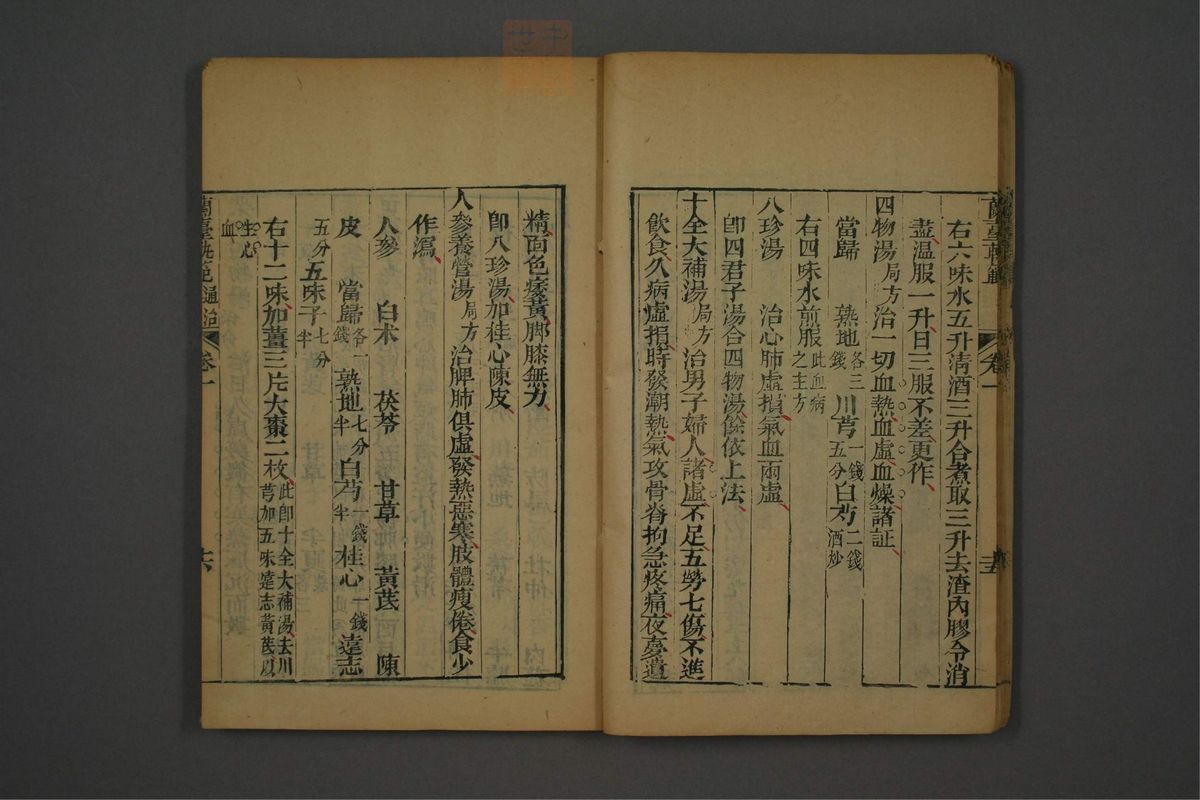 右六味水五升清酒三升合煮取三升去渣內膠令消
盡溫服一升日三服不差更作
四物湯局方治一切血熱血虛血燥諸証
當歸 熟地各三錢川芎一錢五分白芍二錢酒炒
右四味水煎服此血病之主方
八珍湯 治心肺虛損氣血兩虛
卽四君子湯合四物湯餘依上法
十全大補湯局方治男子婦人諸虛不足五勞七傷不進
飲食久病虛損時發潮熱氣攻骨脊拘急疼痛夜夢遺
卷一 十五
精面色痿黃脚膝無力
卽八珍湯加桂心陳皮
人參養營湯局方治脾肺俱虛發熱惡寒肢體瘦倦食少
作瀉
人參 白朮 茯苓 甘草 黃芪 陳
皮 當歸各一錢熟地七分半白芍一錢半桂心一錢遠志
五分五味子七分半
右十二味加薑三片大棗二枚此卽十全大補湯去川芎加五味遠志黃芪以
生心血
蘭臺軌範 通治 卷一 十六